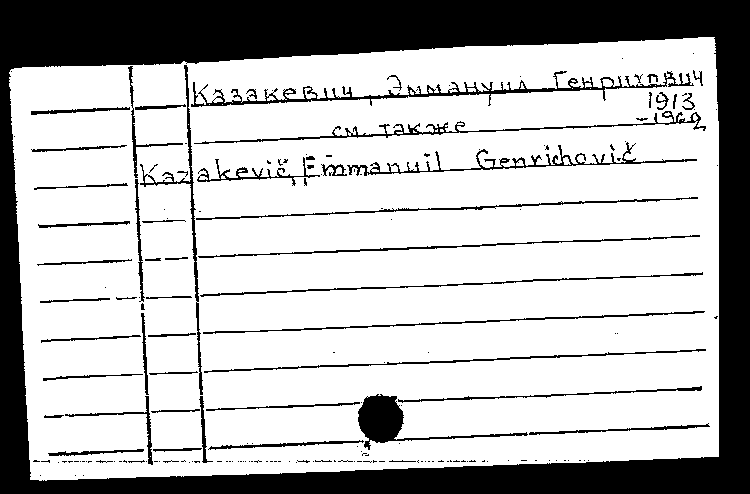 Казакевич, Эммануил Генрихович
1913
-1962
см. также
Kazakevič, Emmanuil Genrichovič